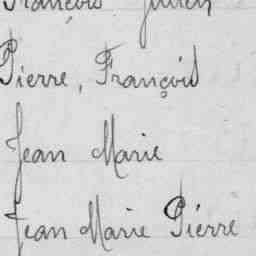 François Julien
Pierre, François
Jean Marie
Jean Marie Pierre